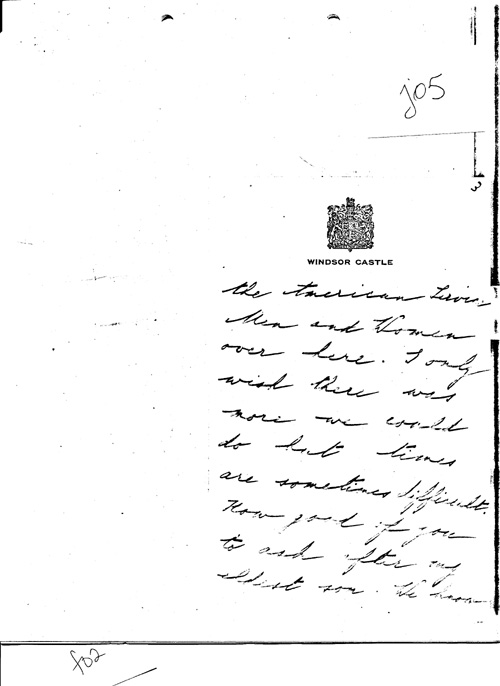 j05
3
WINDSOR CASTLE
the American Service
Men and Women
over here. I only
wish there was
more we could
do but times
are sometimes difficult.
How good of you
to ask after my
eldest son. We have
f02